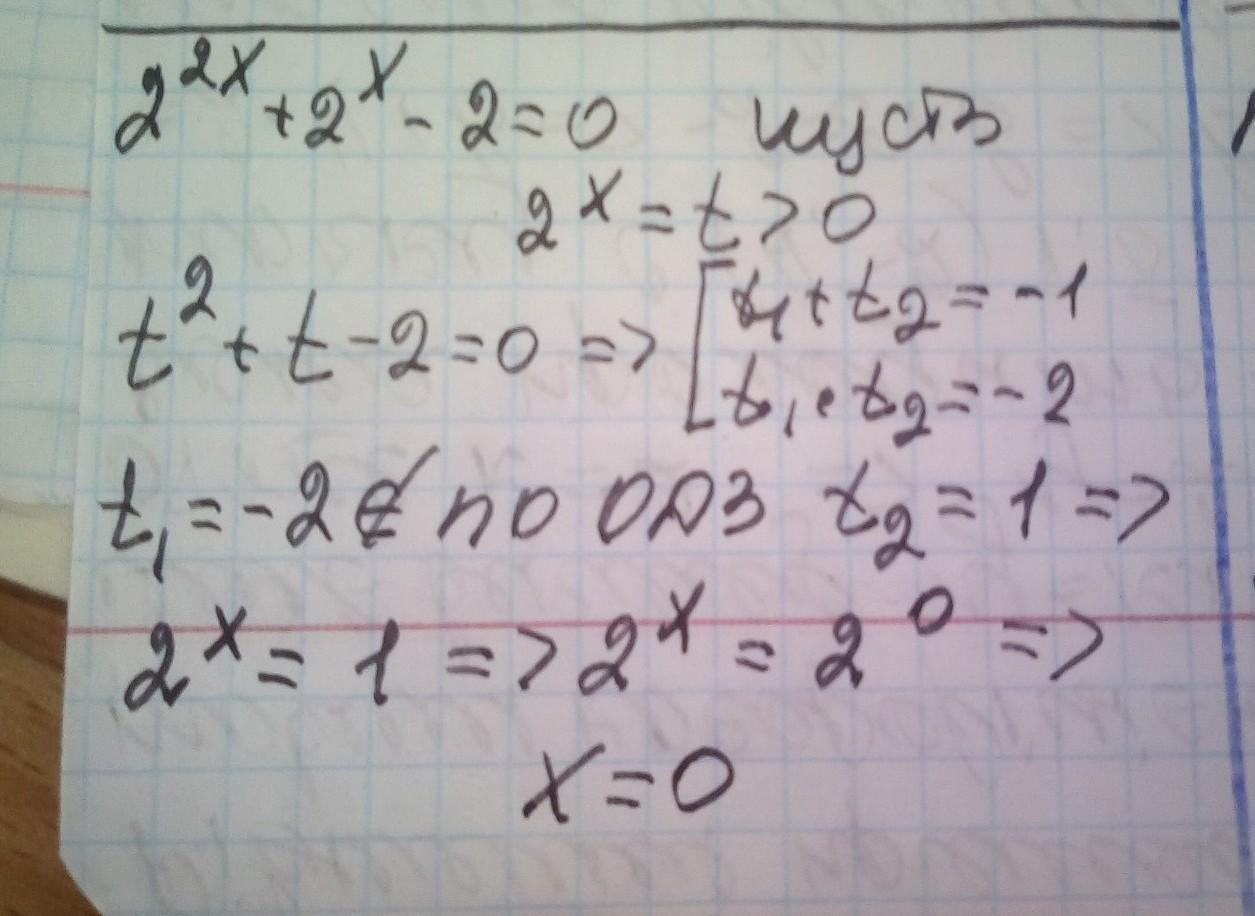 2^{2x} + 2^x - 2 = 0 пусть
2^x = t > 0
t^2 + t - 2 = 0 => [ t_1 + t_2 = -1
t_1 • t_2 = -2
t_1 = -2 ∉ по ОДЗ t_2 = 1 =>
2^x = 1 => 2^x = 2^0 =>
x = 0